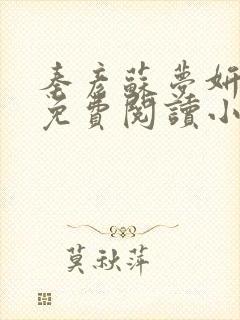 秦彦蘇夢妍
免費閱讀小
莫秋萍